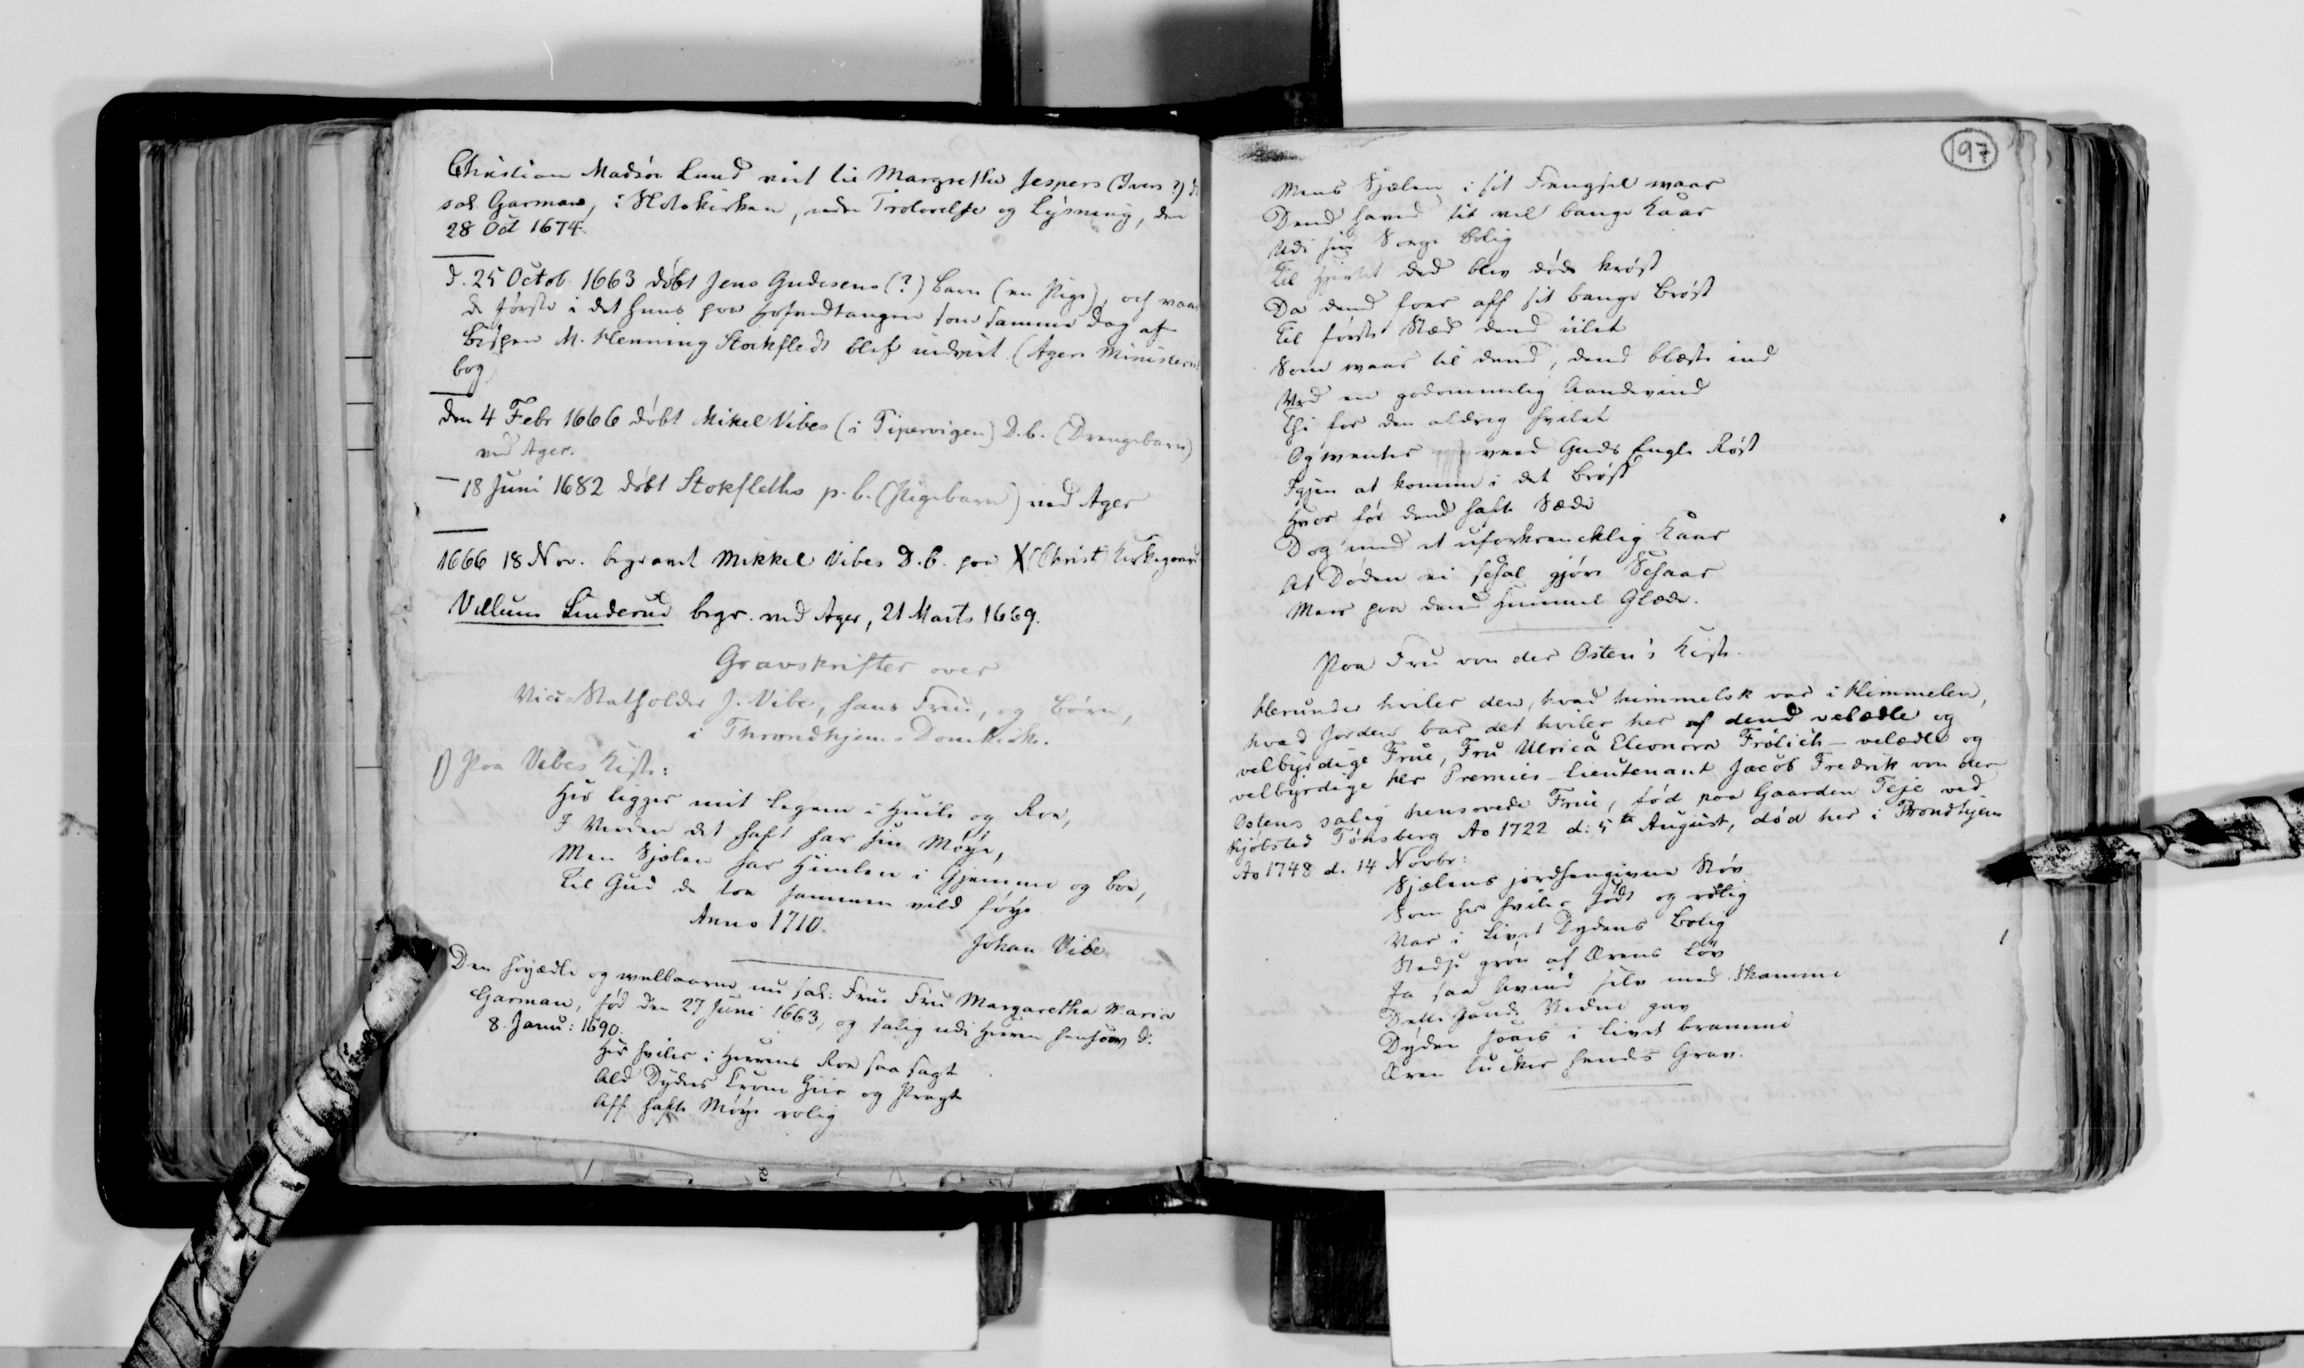 Christian Madsön Lund viet til Margrethe Jespers (Ivers?) D.
sal. Garmans, i Slotskirken, uden Trolovelse og Lysning, den
28 Oct 1674.
d. 25 Octob. 1663 döbt Jens Gudesens (?) barn (en Pige), och vaar
de förste i det huus paa Hofvedtangen som samme dag af
Bispen M. Henning Stockfledt blef indviet (Agers Ministerial
bog)
den 4 Febr 1666 döbt Mikel Vibes (i Pipervigen) D.b. (Drengebarn)
ved Ager.
— 18 Juni 1682 döbt Stokfleths p.b. (Pigebarn) ved Ager
1666 18 Nov. begravet Mikkel Vibes D.b. paa X (Christ) Kirkegaard
Villum Linderud begr. ved Ager, 21 Marts 1669.
Gravskrifter over
Vice-Statholder J. Vibe, hans Frue, og Börn,
i Throndhjems Domkirke.
1) Paa Vibes Kiste:
Her ligger mit Legem i Hvile og Roe,
I Verden det haft har sin Möye,
Men Sjælen har Himlen i Gjemme og boe,
Til Gud de toe sammen vild föye.
Anno 1710.
Johan Vibe
Den höyædle og welbaarne nu sal: Frue Fru Margaretha Maria
Garman, föd den 27 Juni 1663, og salig udi Herren hensoov d.
8. Janu: 1690.
Her hviler i Herrens Roe saa sagt
Ald Dyders Krone Ziir og Pragt
Aff hafte Möye rolig
197
Mens Sjælen i sit Fengsel waar
Dend havde sit vel bange Kaar
Udi sin Sorge bolig
Til Hjertet ded blev döds kröst
Da dend foer aff sit bange Bröst
Til förste Stæd dend iilet
Som waar til dend, dend blæste ind
Ved en godommelig Aandevind
Thi for den aldrig hvilet
Og wenter weed Guds Engle Röst
Igjen at komme i det Bröst
Hvor för dend hafte Sæde
Dog med et uforkrencklig Kaar
At Döden ei schal gjöre Schaar
Meer paa dend Himmel Glæde.
Paa Fru von der Osten's Kiste.
Herunder hviler den, hvad himmelsk var i Himmelen,
hvad Jorden bar det hviler her af dend velædle og
velbyrdige Frue, Fru Ulrica Eleonora Frölich – velædle og
velbyrdige Hr Premier-Lieutenant Jacob Fredrik von der
Ostens salig hensovede Frue, föd paa Gaarden Teje ved
Kjöbsted Tönsberg Ao 1722 d: 5te August, död her i Trondhjem
Ao 1748 d. 14 Novbr:
Sjælens jordhengivne Stöv
Som her hviler södt og rolig
Var i Livet Dydens Bolig
Stedse grön af Ærens Löv
Ja saa Avind selv med Skamme
Dette Vidne gav
Dyden i Livet bramme
Æren lucker hendes Grav.